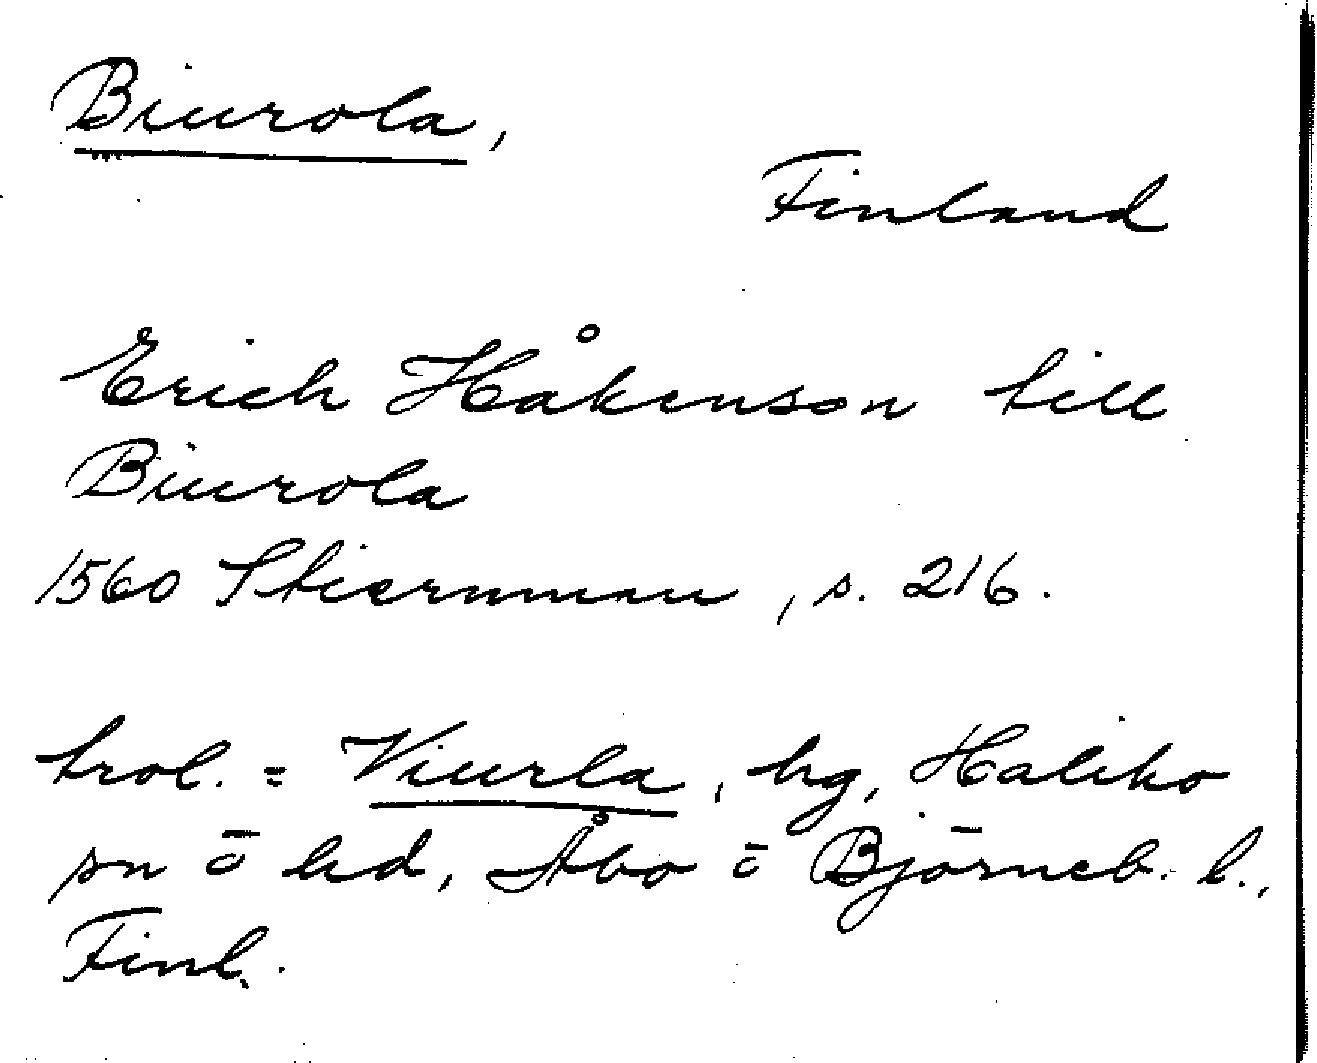 Biurola,
Finland
Erich Håkenson till
Biurola
1560 Stiernman, s. 216.
trol. = Viurla, hg, Haliko
sn ō hd, Åbo ō Björneb. l.,
Finl.